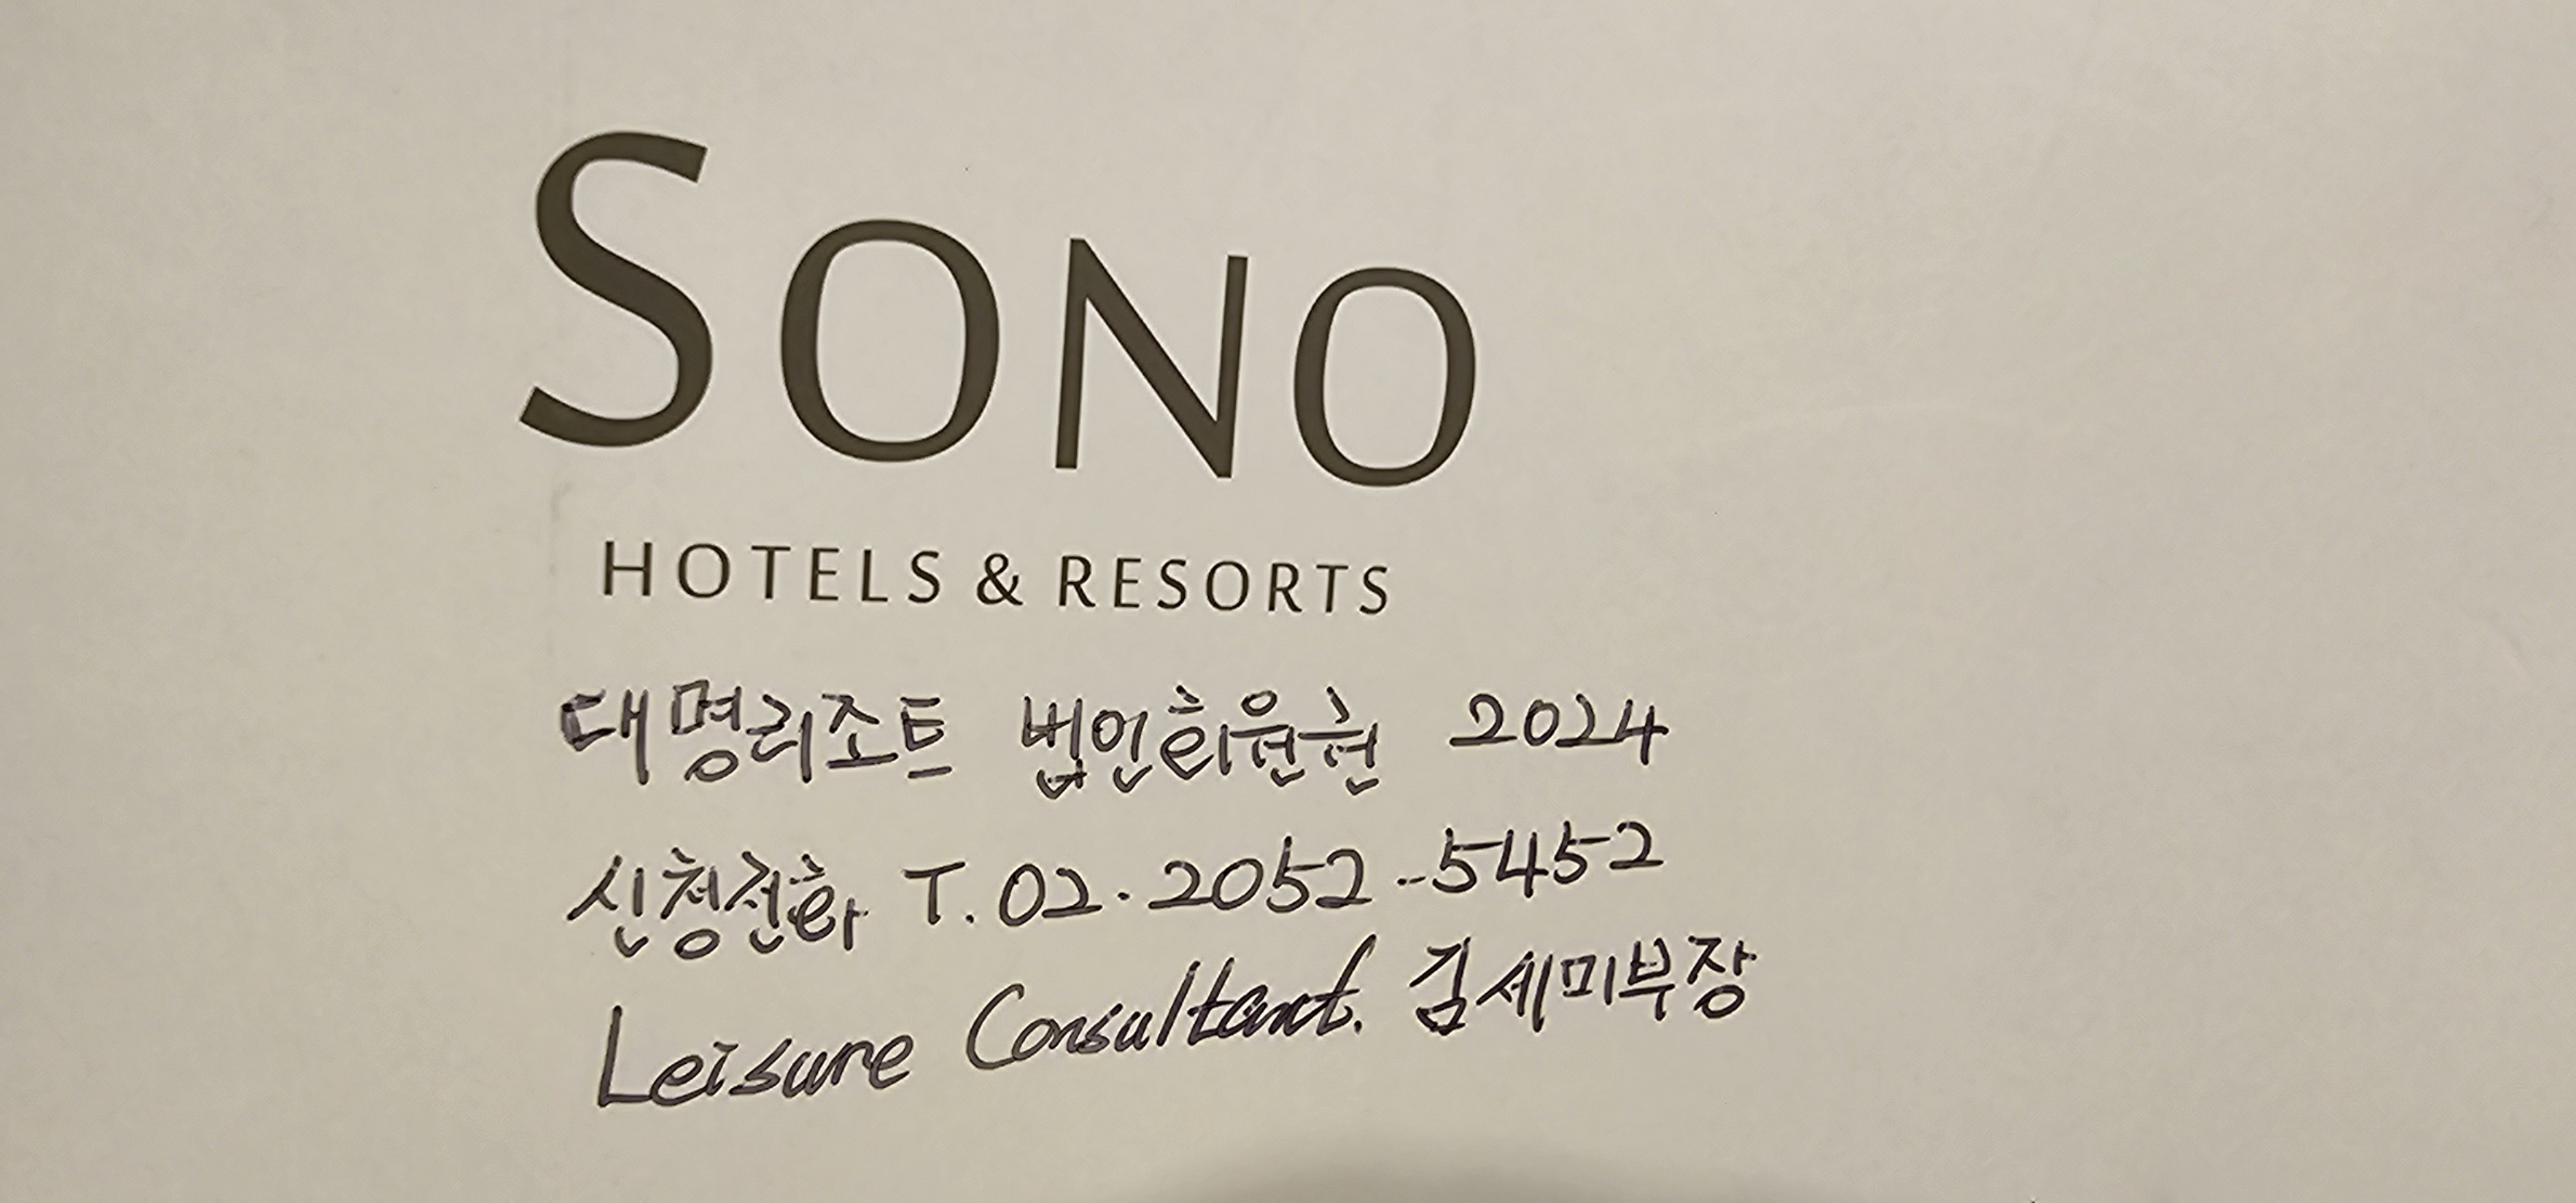 SONO
HOTELS & RESORTS
대명리조트 법인회원권 2024
신청전화 T. 02. 2052 -5452
Leisure Consultant. 김세미부장